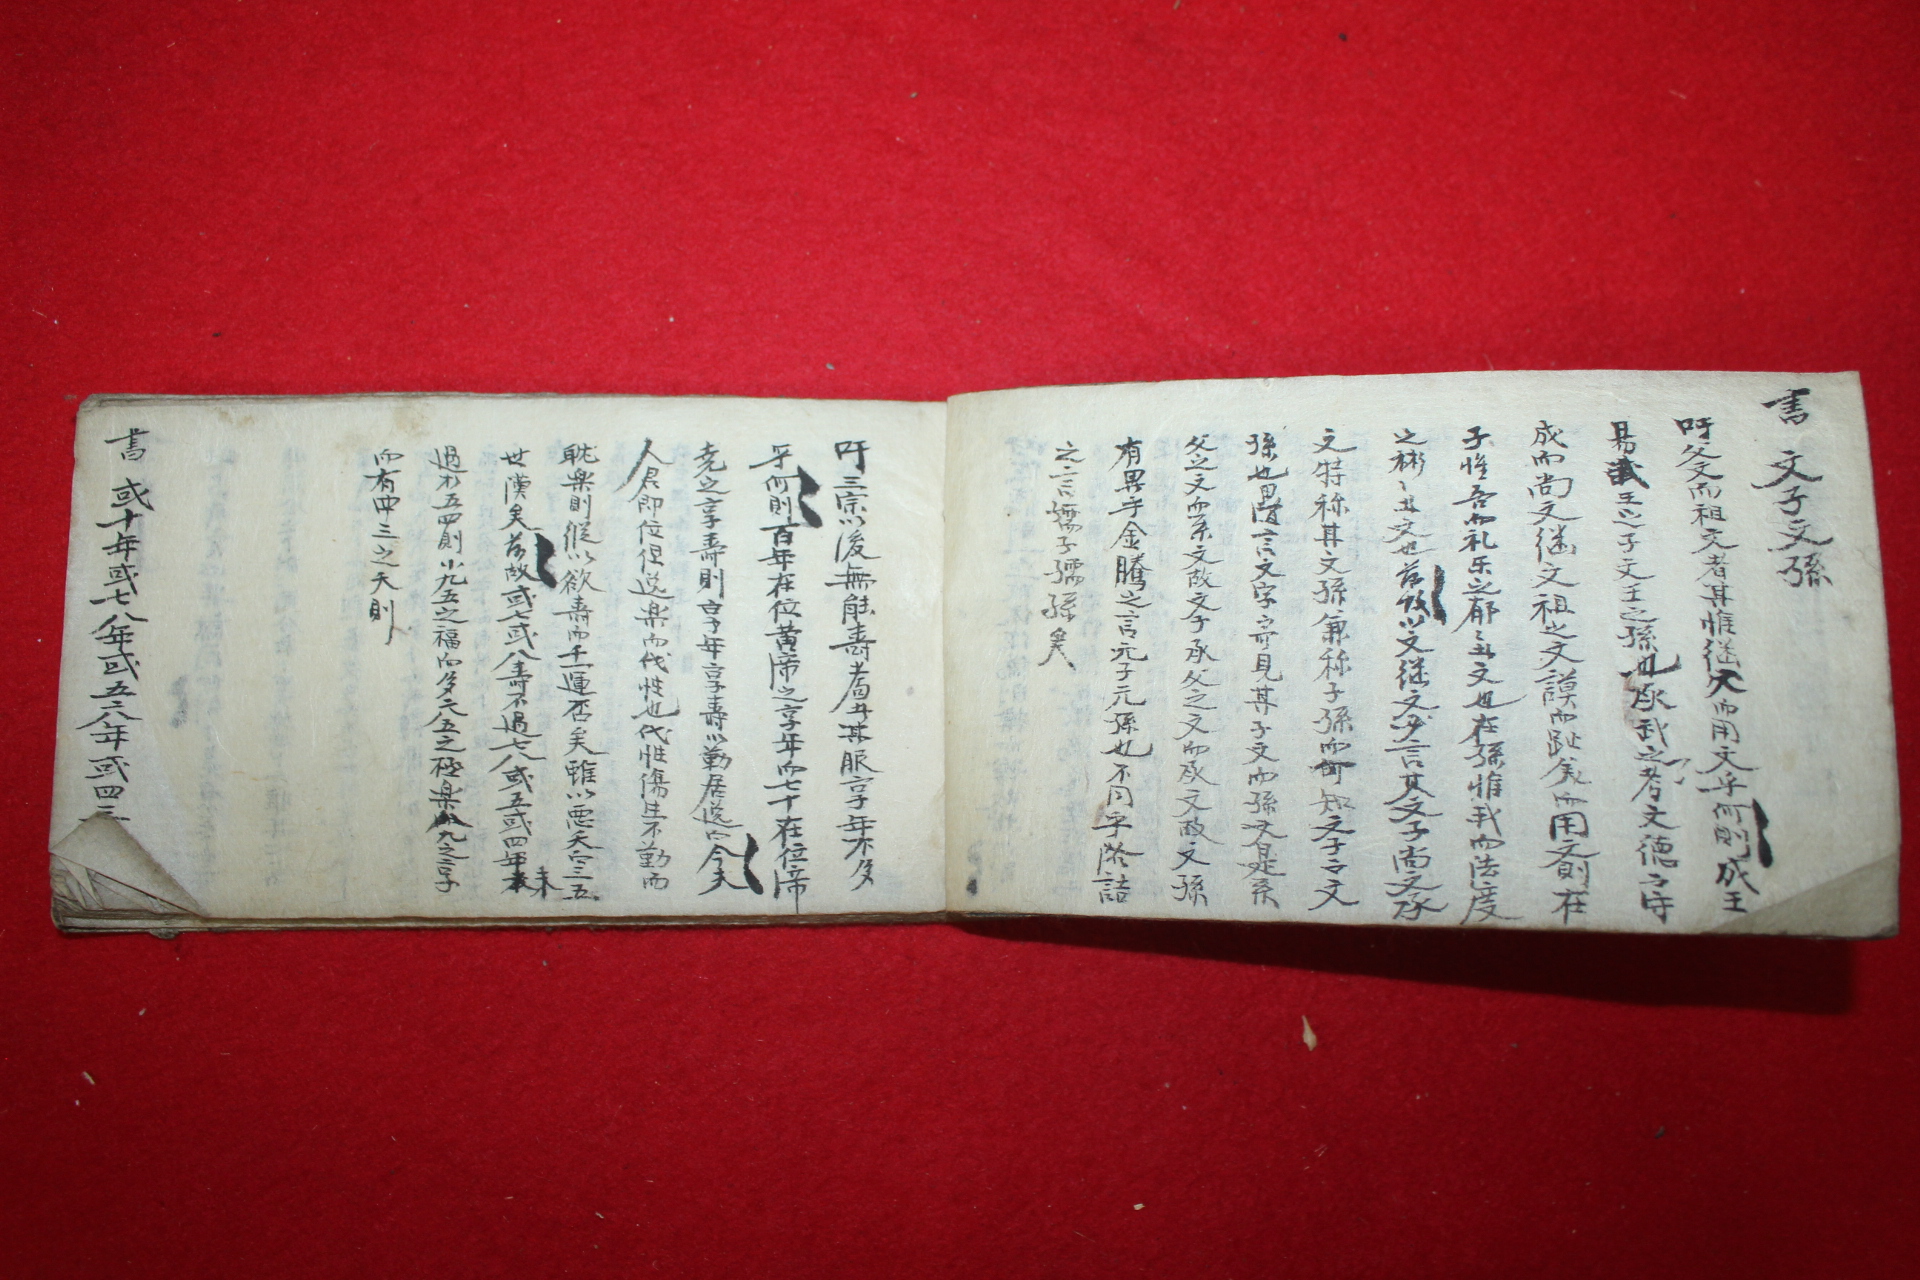 書 文子文孫
吁父文而祖文者其惟继文而用文乎何則成王
昜武王之子文王之孫也承武之考文德之守
成而尚文继文祖之文謨而趾美而用文則在
子惟吾而礼乐之郁〻其文也在孫惟我而法度
之彬〻其文也若故以文继文必言其文子尚文承
文特称其文孫兼称子孫而何知文子之文
孫也且道言文字亦見其子文而孫文是系
父之文而系文故文子承父之文而承文故文孫
有異乎金騰之言元子元孫也不同乎洛誥
之言孺子孺孫矣
吁三宗以後無能壽耉其服享年不多
乎何則百年在位黄帝之享年而七十在位帝
尭之享壽則享年享壽以勤居逸而今夫
人君即位但逸楽而伐性也伐性傷生不勤而
耽楽則縦以欲壽而壬運否矣雖以悪夭三五
世漢矣若故或七或八壽不過七八或五或四年未
過於五四則以九五之福而多六五之極楽九之享
而有毋三之夭則
書 或十年或七八年或五六年或四三